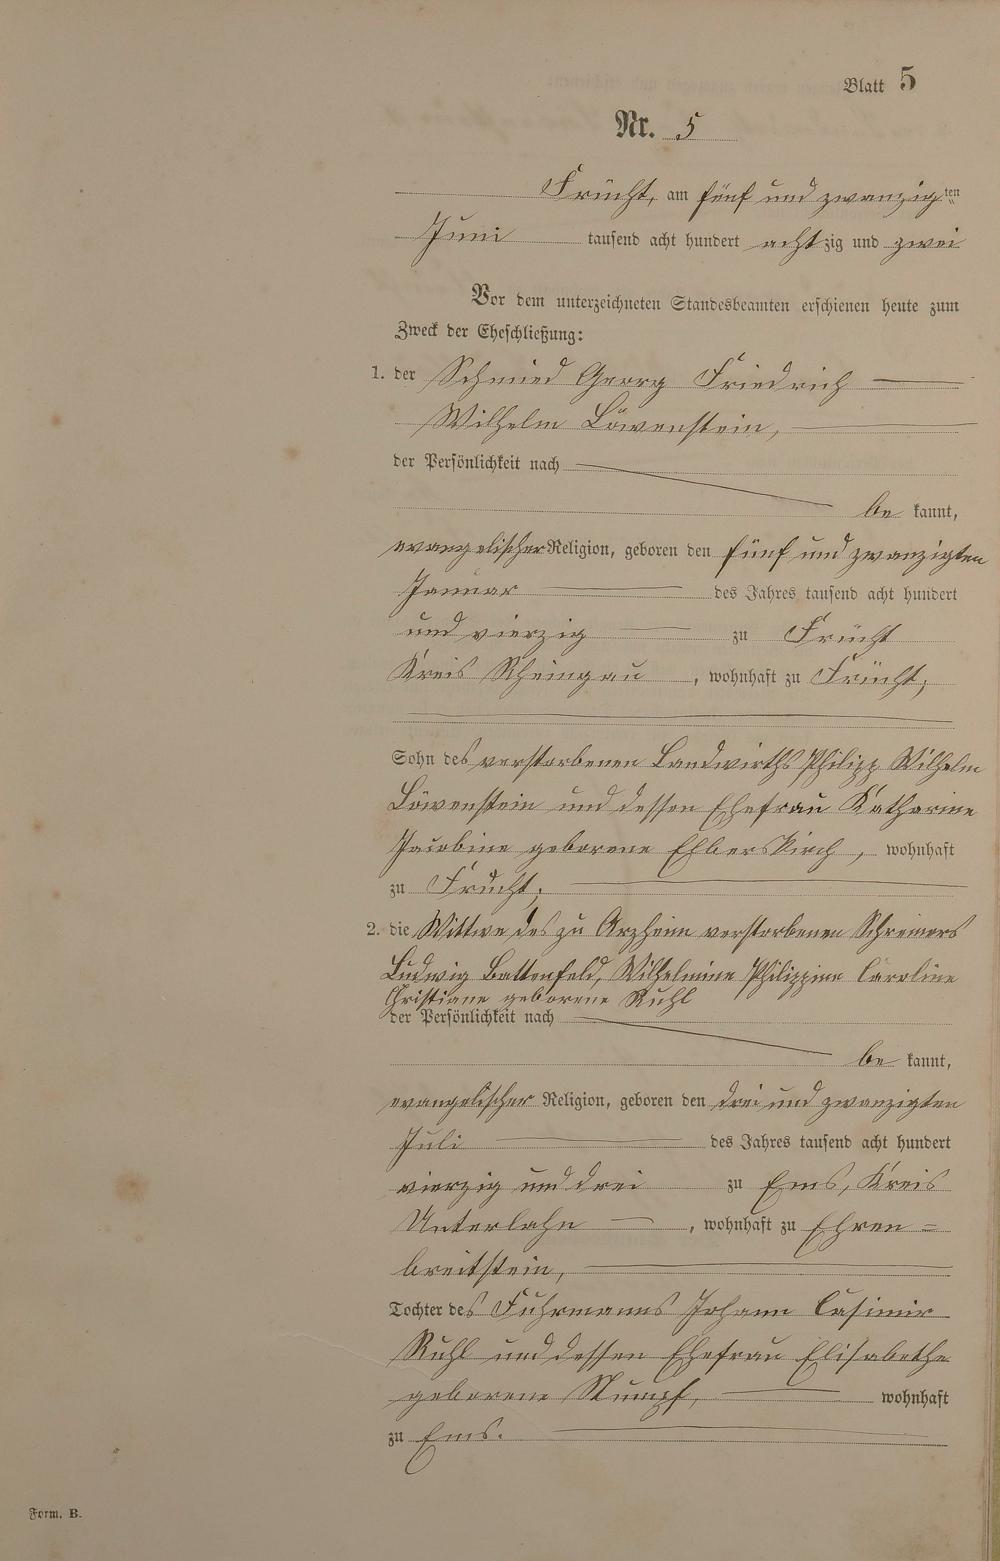 Blatt 5
Nr. 5
Frücht, am fünf und zwanzigten
Juni tausend acht hundert achtzig und zwei
Vor dem unterzeichneten Standesbeamten erschienen heute zum
Zweck der Eheschließung:
1. der Schmied Georg Friedrich
Wilhelm Löwenstein,
der Persönlichkeit nach
be kannt,
evangelischer Religion, geboren den fünf und zwanzigten
Januar des Jahres tausend acht hundert
und vierzig zu Frücht
Kreis Rheingau, wohnhaft zu Frücht,
Sohn des verstorbenen Landwirths Philipp Wilhelm
Löwenstein und dessen Ehefrau Katharine
Jacobine geborene, wohnhaft
zu Frücht;
2. die Wittwe des zu Arzheim verstorbenen Schreiners
Ludwig Battenfeld, Wilhelmine Philippine Caroline
Christiane geborene Ruhl
der Persönlichkeit nach
be kannt,
evangelischer Religion, geboren den drei und zwanzigten
Juli des Jahres tausend acht hundert
vierzig und drei zu Ems, Kreis
Unterlahn, wohnhaft zu Ehren=
breitstein,
Tochter des Fuhrmanns Johann Casimir
Ruhl und dessen Ehefrau Elisabethe
geborene Stumpf, wohnhaft
zu Ems.
Form. B.